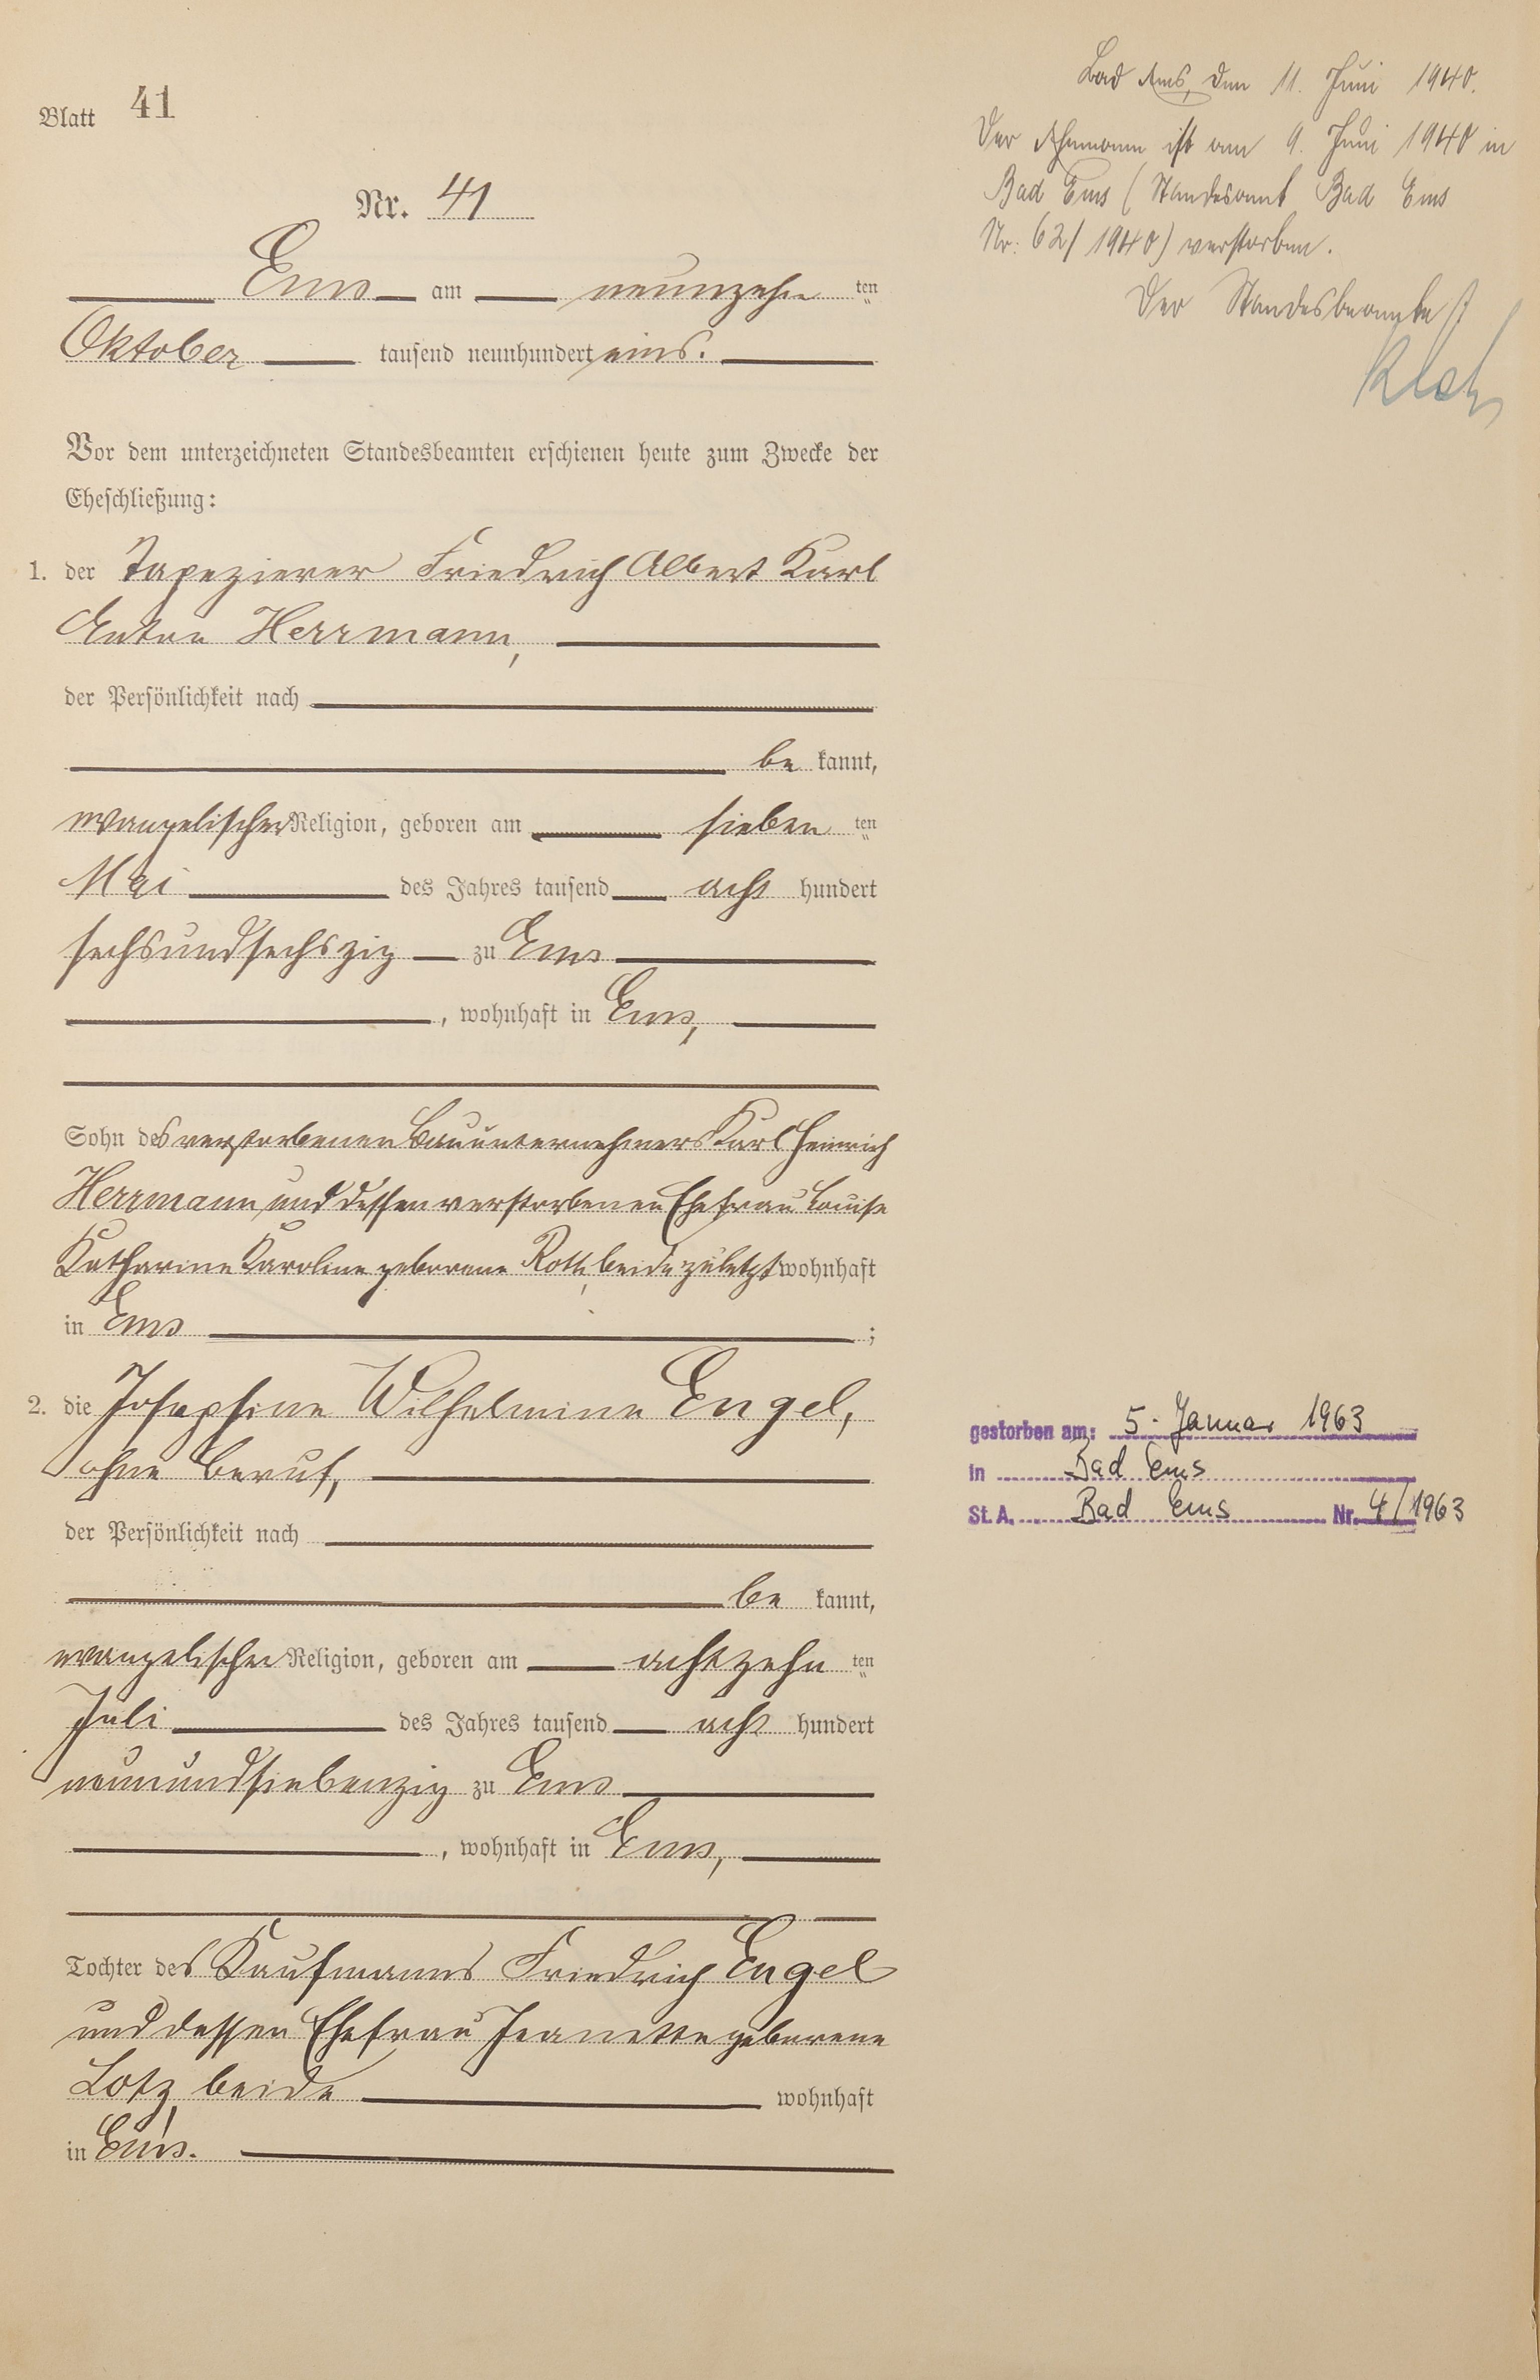 Blatt 41
Nr. 41
Ems am neunzehn ten
Oktober tausend neunhundert eins.
Vor dem unterzeichneten Standesbeamten erschienen heute zum Zwecke der
Eheschließung:
1. der Tapezierer Friedrich Albert Karl
Anton Herrmann,
der Persönlichkeit nach
be kannt,
evangelischer Religion, geboren am sieben ten
Mai des Jahres tausend acht hundert
sechsundsechszig zu Ems
, wohnhaft in Ems,
Sohn des verstorbenen Bauunternehmers Karl Heinrich
Herrmann und dessen verstorbenen Ehefrau Louise
Katharine Karoline geborene Roth, beide zuletzt wohnhaft
in Ems ;
2. die Josephine Wilhelmine Engel,
ohne Beruf,
der Persönlichkeit nach
be kannt,
evangelischer Religion, geboren am achtzehn ten
Juli des Jahres tausend acht hundert
neunundsiebenzig zu Ems
, wohnhaft in Ems,
Tochter des Kaufmanns Friedrich Engel
und dessen Ehefrau Jeanette geborene
Lotz, beide wohnhaft
in Ems.
Bad Ems, den 11. Juni 1940.
Der Ehemann ist am 9. Juni 1940 in
Bad Ems (Standesamt Bad Ems
Nr. 62/1940) verstorben.
Der Standesbeamte
gestorben am: 5. Januar 1963
in Bad Ems
St. A. Bad Ems Nr. 4/1963